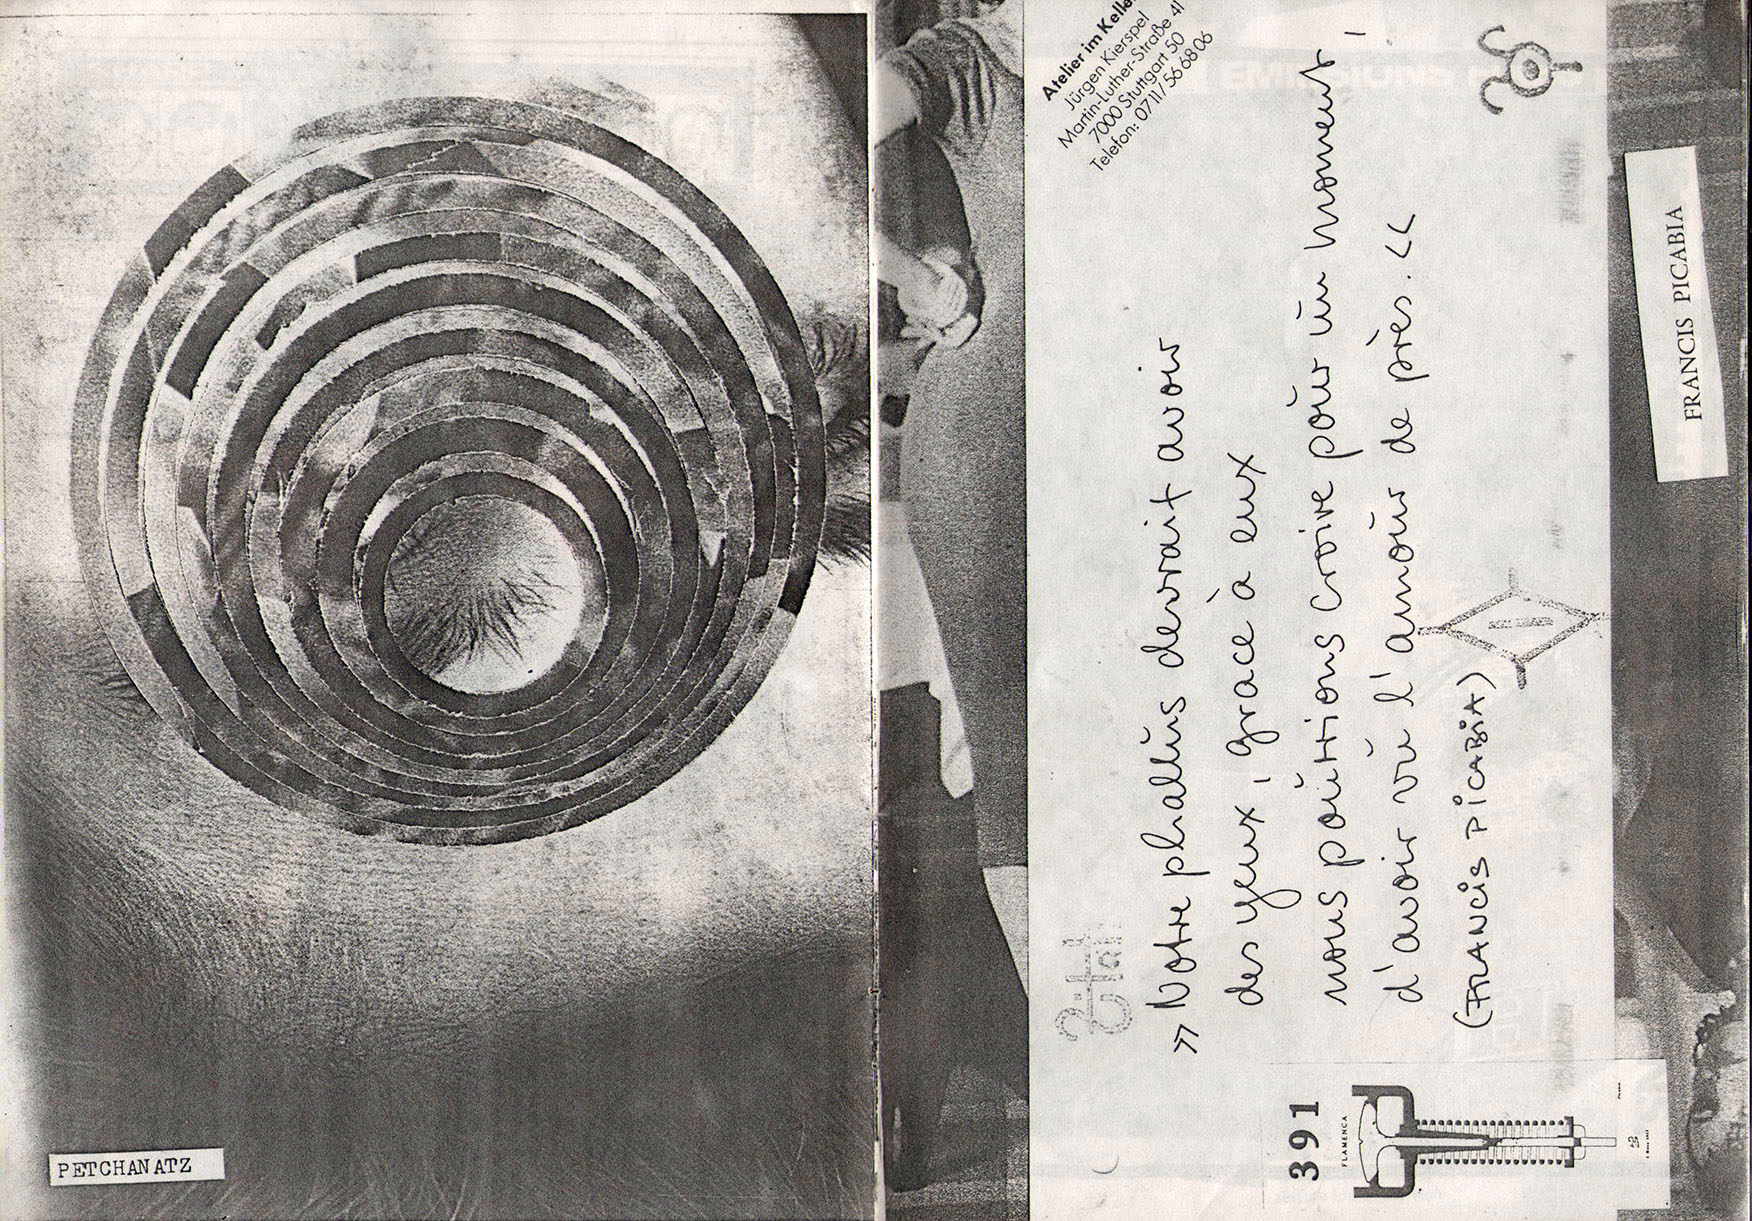 PETCHANATZ
Atelier im Kelle
Jürgen Kierspel
Martin-Luther-Straße 41
7000 Stuttgart 50
Telefon: 0711/ 56 68 06
» Notre phallus devrait avoir
des yeux, grace à eux
nous poütrions croire pour un moment,
d'avoir vu l'amour de près. «
(FRANCIS PICABIA)
391
FLAMENCA
FRANCIS PICABIA